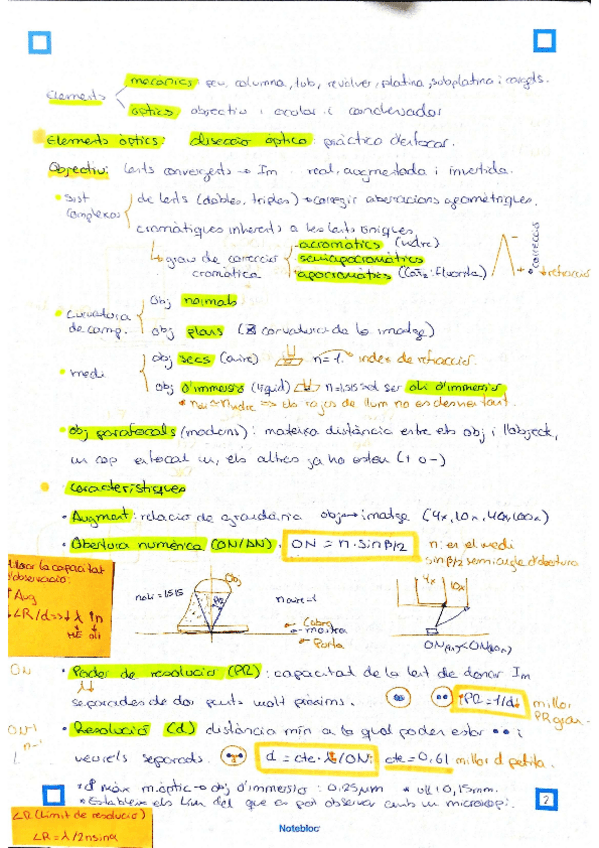 Elements
mecànics peu, columna, tub, revòlver, platina, subplatina i cargols.
òptics objectiu i ocular i condensador
Elements òptics: dissecció òptica: pràctica d'enfocar.
Objectiu: lents convergents → Im real, augmentada i invertida.
• Sist complexos
de lents (dobles, triples) → corregir aberracions geomètriques,
cromàtiques inherents a les lents úniques
↳ grau de correcció cromàtica
acromàtics (vidre)
semiapocromàtics
apocromàtics (CaF2: fluorita)
correcció
refracció
• Curvatura de camp.
Obj normals
Obj plans (curvatura de la imatge)
• medi
Obj secs (aire) n=1. índex de refracció.
Obj d'immersió (líquid) n=1,515 sol ser oli d'immersió
* noli ≈ nvidre => els rajos de llum no es desvien tant.
• Obj parafocals (moderns): mateixa distància entre els obj i l'objecte,
un cop enfocat un, els altres ja ho estan (+ o -)
• Característiques
• Augment: relació de grandària obj → imatge (4x, 10x, 40x, 100x)
• Obertura numèrica (ON/AN). ON = n·sinβ/2 n: en el medi
sinβ/2 semiangle d'obertura
la capacitat
d'observació:
↑Aug
↓LR/d => ↓λ ↑n
ME oli
noli = 1515
Obj
naire = 1
Cobre
mostra
Porta
4x 10x
ON(4x)<ON(10x)
ON • Poder de resolució (PR): capacitat de la lent de donar Im
separades de dos punts molt pròxims. ↑PR = 1/d↓ millor
PR gran.
ON-1 • Resolució (d) distància mín a la qual poden estar •• i
n-1
veure'ls separats. d = cte·λ/ON; cte = 0,61 millor d petita.
* d màx m.òptic → obj d'immersió: 0,25μm * ull: 0,15mm.
* Estableix els lím del que es pot observar amb un microscopi.
LR (Límit de resolució)
LR = λ/2nsinα
2
Notebloc